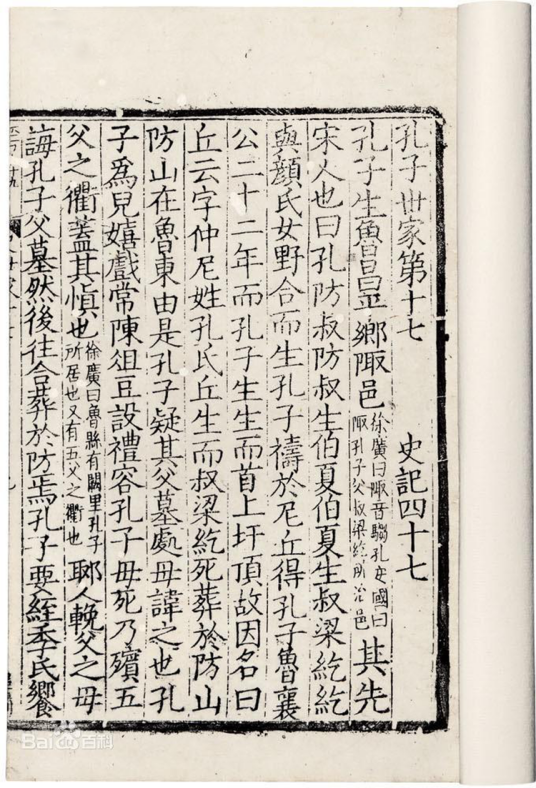 孔子世家第十七　史記四十七
孔子生魯昌平鄉陬邑徐廣曰陬音騶孔安國曰陬孔子父叔梁紇所治邑其先
宋人也曰孔防叔防叔生伯夏伯夏生叔梁紇紇
與顏氏女野合而生孔子禱於尼丘得孔子魯襄
公二十二年而孔子生生而首上圩頂故因名曰
丘云字仲尼姓孔氏丘生而叔梁紇死葬於防山
防山在魯東由是孔子疑其父墓處母諱之也孔
子爲兒嬉戲常陳俎豆設禮容孔子母死乃殯五
父之衢蓋其慎也徐廣曰魯縣有闕里孔子所居也又有五父之衢也郰人輓父之母
誨孔子父墓然後往合葬於防焉孔子要絰季氏饗
Bai 百科